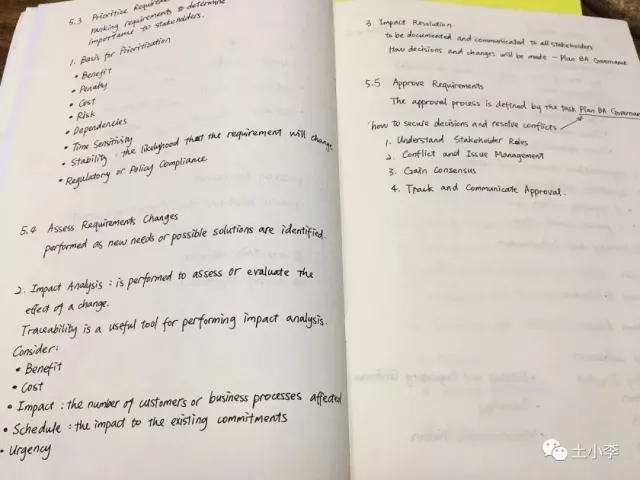 5.3 Prioritize
ranking requirements to determine
importance to stakeholders.
1. Basis for Prioritization
• Benefit
• Penalty
• Cost
• Risk
• Dependencies
• Time Sensitivity
• Stability : the likelyhood that the requirement will change
• Regulatory or Policy Compliance.
5.4 Assess Requirements Changes
performed as new needs or possible solutions are identified.
2. Impact Analysis : is performed to assess or evaluate the
effect of a change.
Traceability is a useful tool for performing impact analysis.
Consider:
• Benefit
• Cost
• Impact : the number of customers or business processes affected
• Schedule : the impact to the existing commitments
• Urgency
3. Impact Resolution
to be documented and communicated to all stakeholders
How decisions and changes will be made - Plan BA Governance
5.5 Approve Requirements
The approval process is defined by the task Plan BA
how to secure decisions and resolve conflicts
1. Understand Stakeholder Roles
2. Conflict and Issue Management
3. Gain Consensus
4. Track and Communicate Approval.
土小李